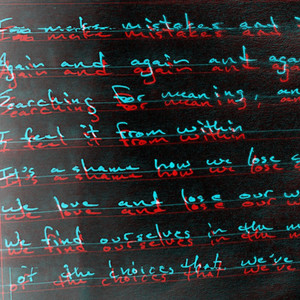 I too make mistakes and
Again and again and again
Searching for meaning, an
I feel it from within
It's a shame how we lose s
we love and lose our w
we find ourselves in the m
of the choices that we've